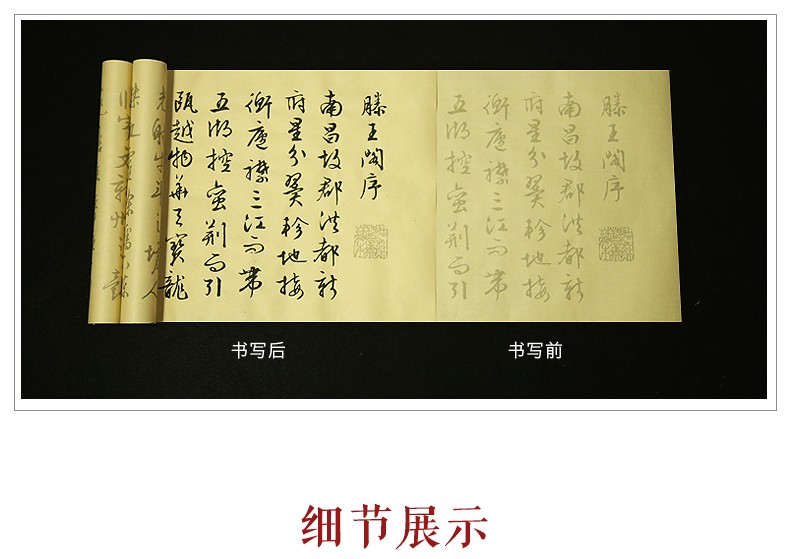 滕王閣序
南昌故郡洪都新
府星分翼軫地接
衡廬襟三江而帶
五湖控蠻荆而引
滕王閣序
南昌故郡洪都新
府星分翼軫地接
衡廬襟三江而帶
五湖控蠻荆而引
甌越物華天寶龍
书写后
书写前
细节展示